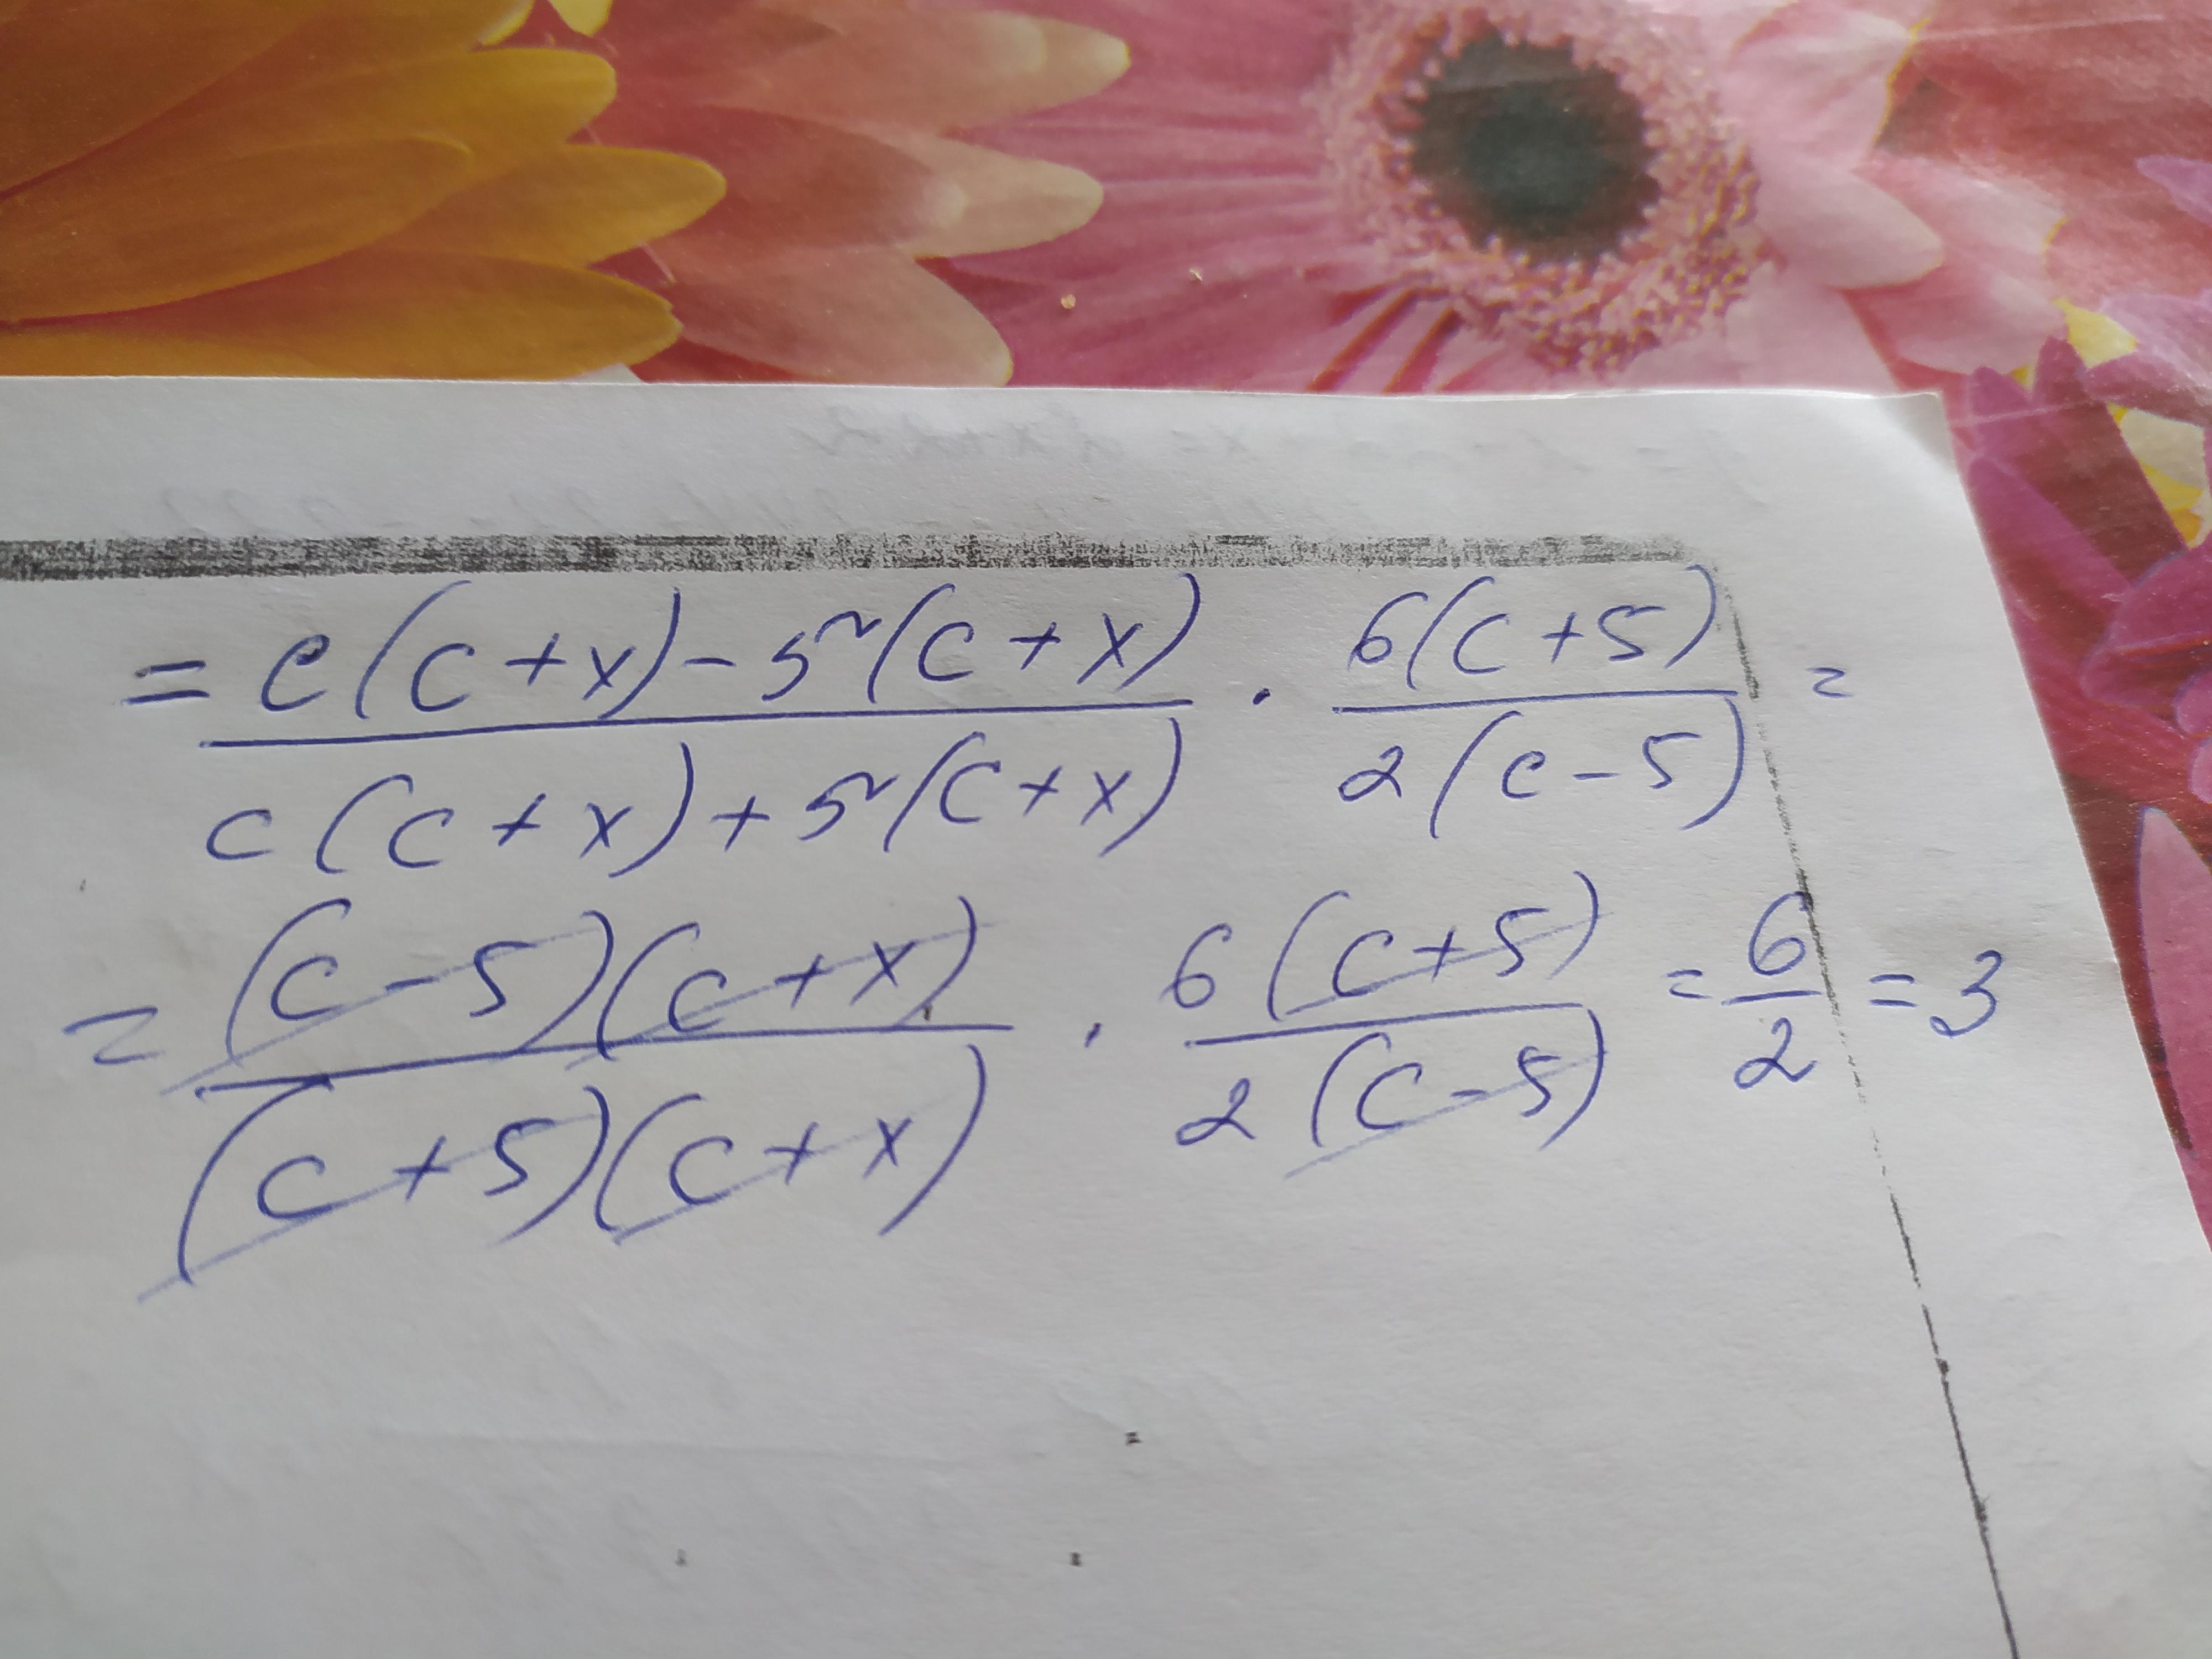 = c(c+x)-5(c+x) / c(c+x)+5(c+x) · 6(c+5) / 2(c-5) =
= (c-5)(c+x) / (c+5)(c+x) · 6(c+5) / 2(c-5) = 6/2 = 3